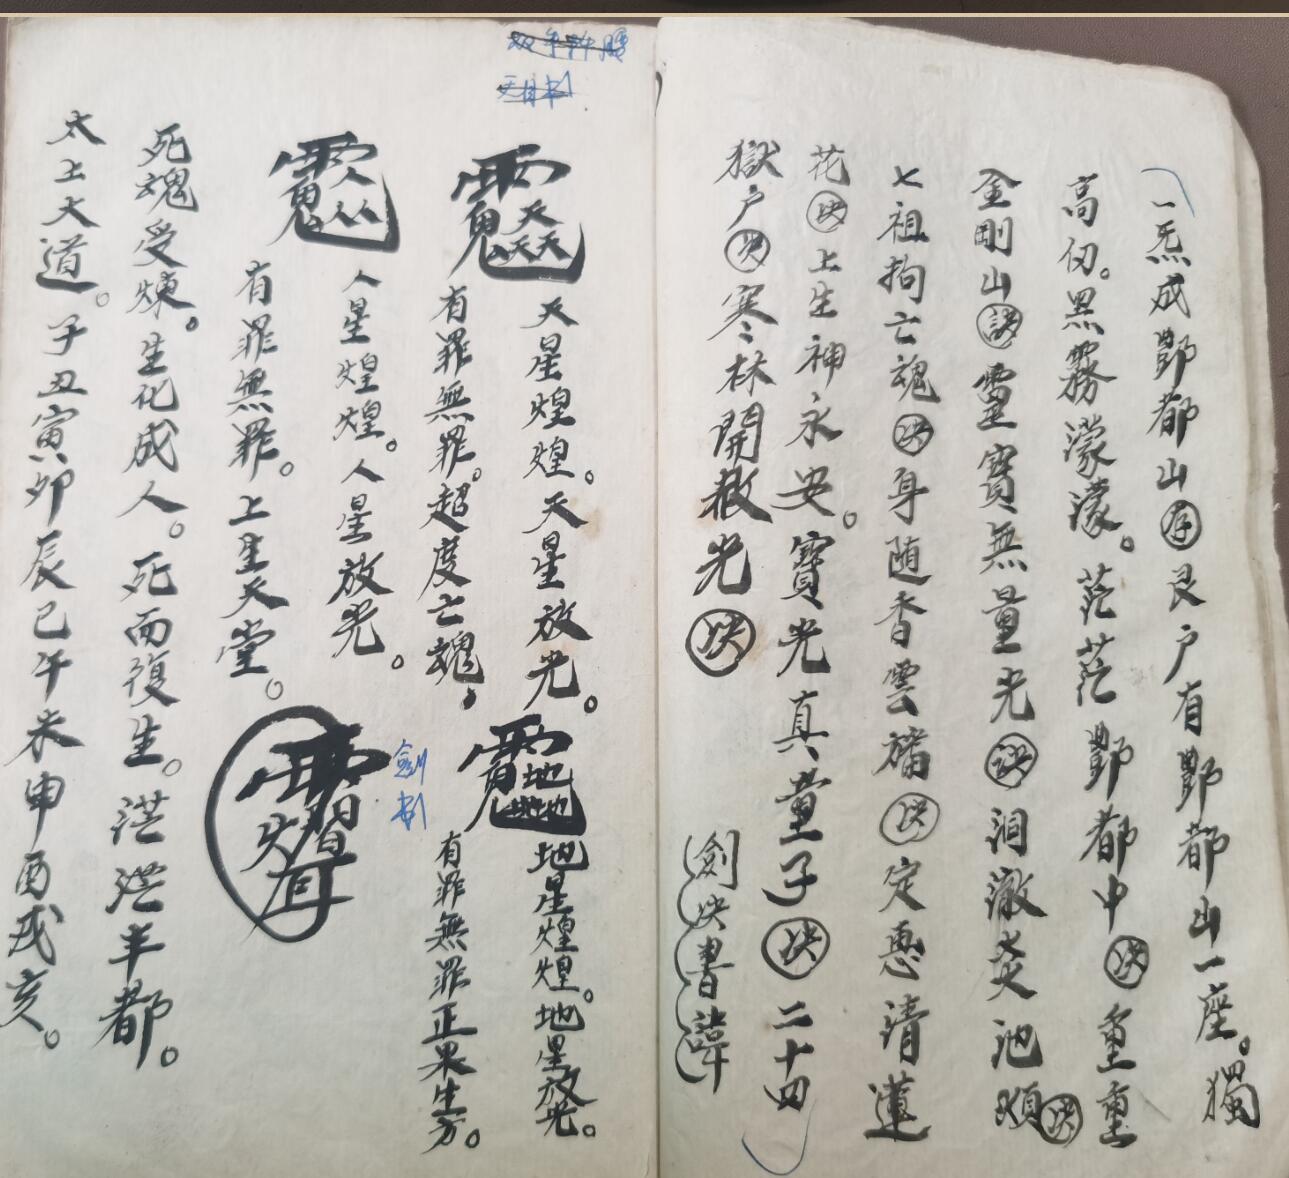 一炁成酆都山右艮户有酆都山一座。獨
高仞。黑霧濛濛。茫茫酆都中決重重
金剛山訣靈寶無量光訣洞澈炎池煩決
七祖拘亡魂決身随香雲旛決定惠清蓮
花決上生神永安。寶光真童子決二十四
獄户決寒林開赦光決
劍決書諱
天星煌煌。天星放光。
有罪無罪。超度亡魂，
地星煌煌。地星放光。
有罪無罪正果生方。
人星煌煌。人星放光。
有罪無罪。上生天堂。
劍
死魂受煉。生化成人。死而復生。茫茫丰都。
太上大道。子丑寅卯辰巳午未申酉戌亥。